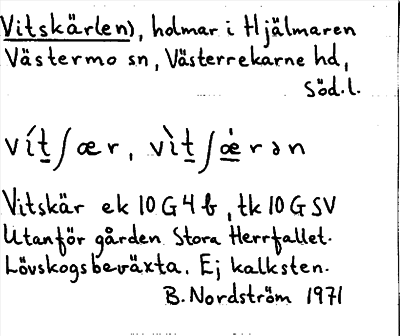 Vitskär(en), holmar i Hjälmaren
Västermo sn, Västerrekarne hd,
Söd.l.
vít̲ʃær, vìt̲ʃæ̲̀rən
Vitskär ek 10 G 4 b, tk 10 G SV
Utanför gården Stora Herrfallet.
Lövskogsbeväxta. Ej kalksten.
B. Nordström 1971